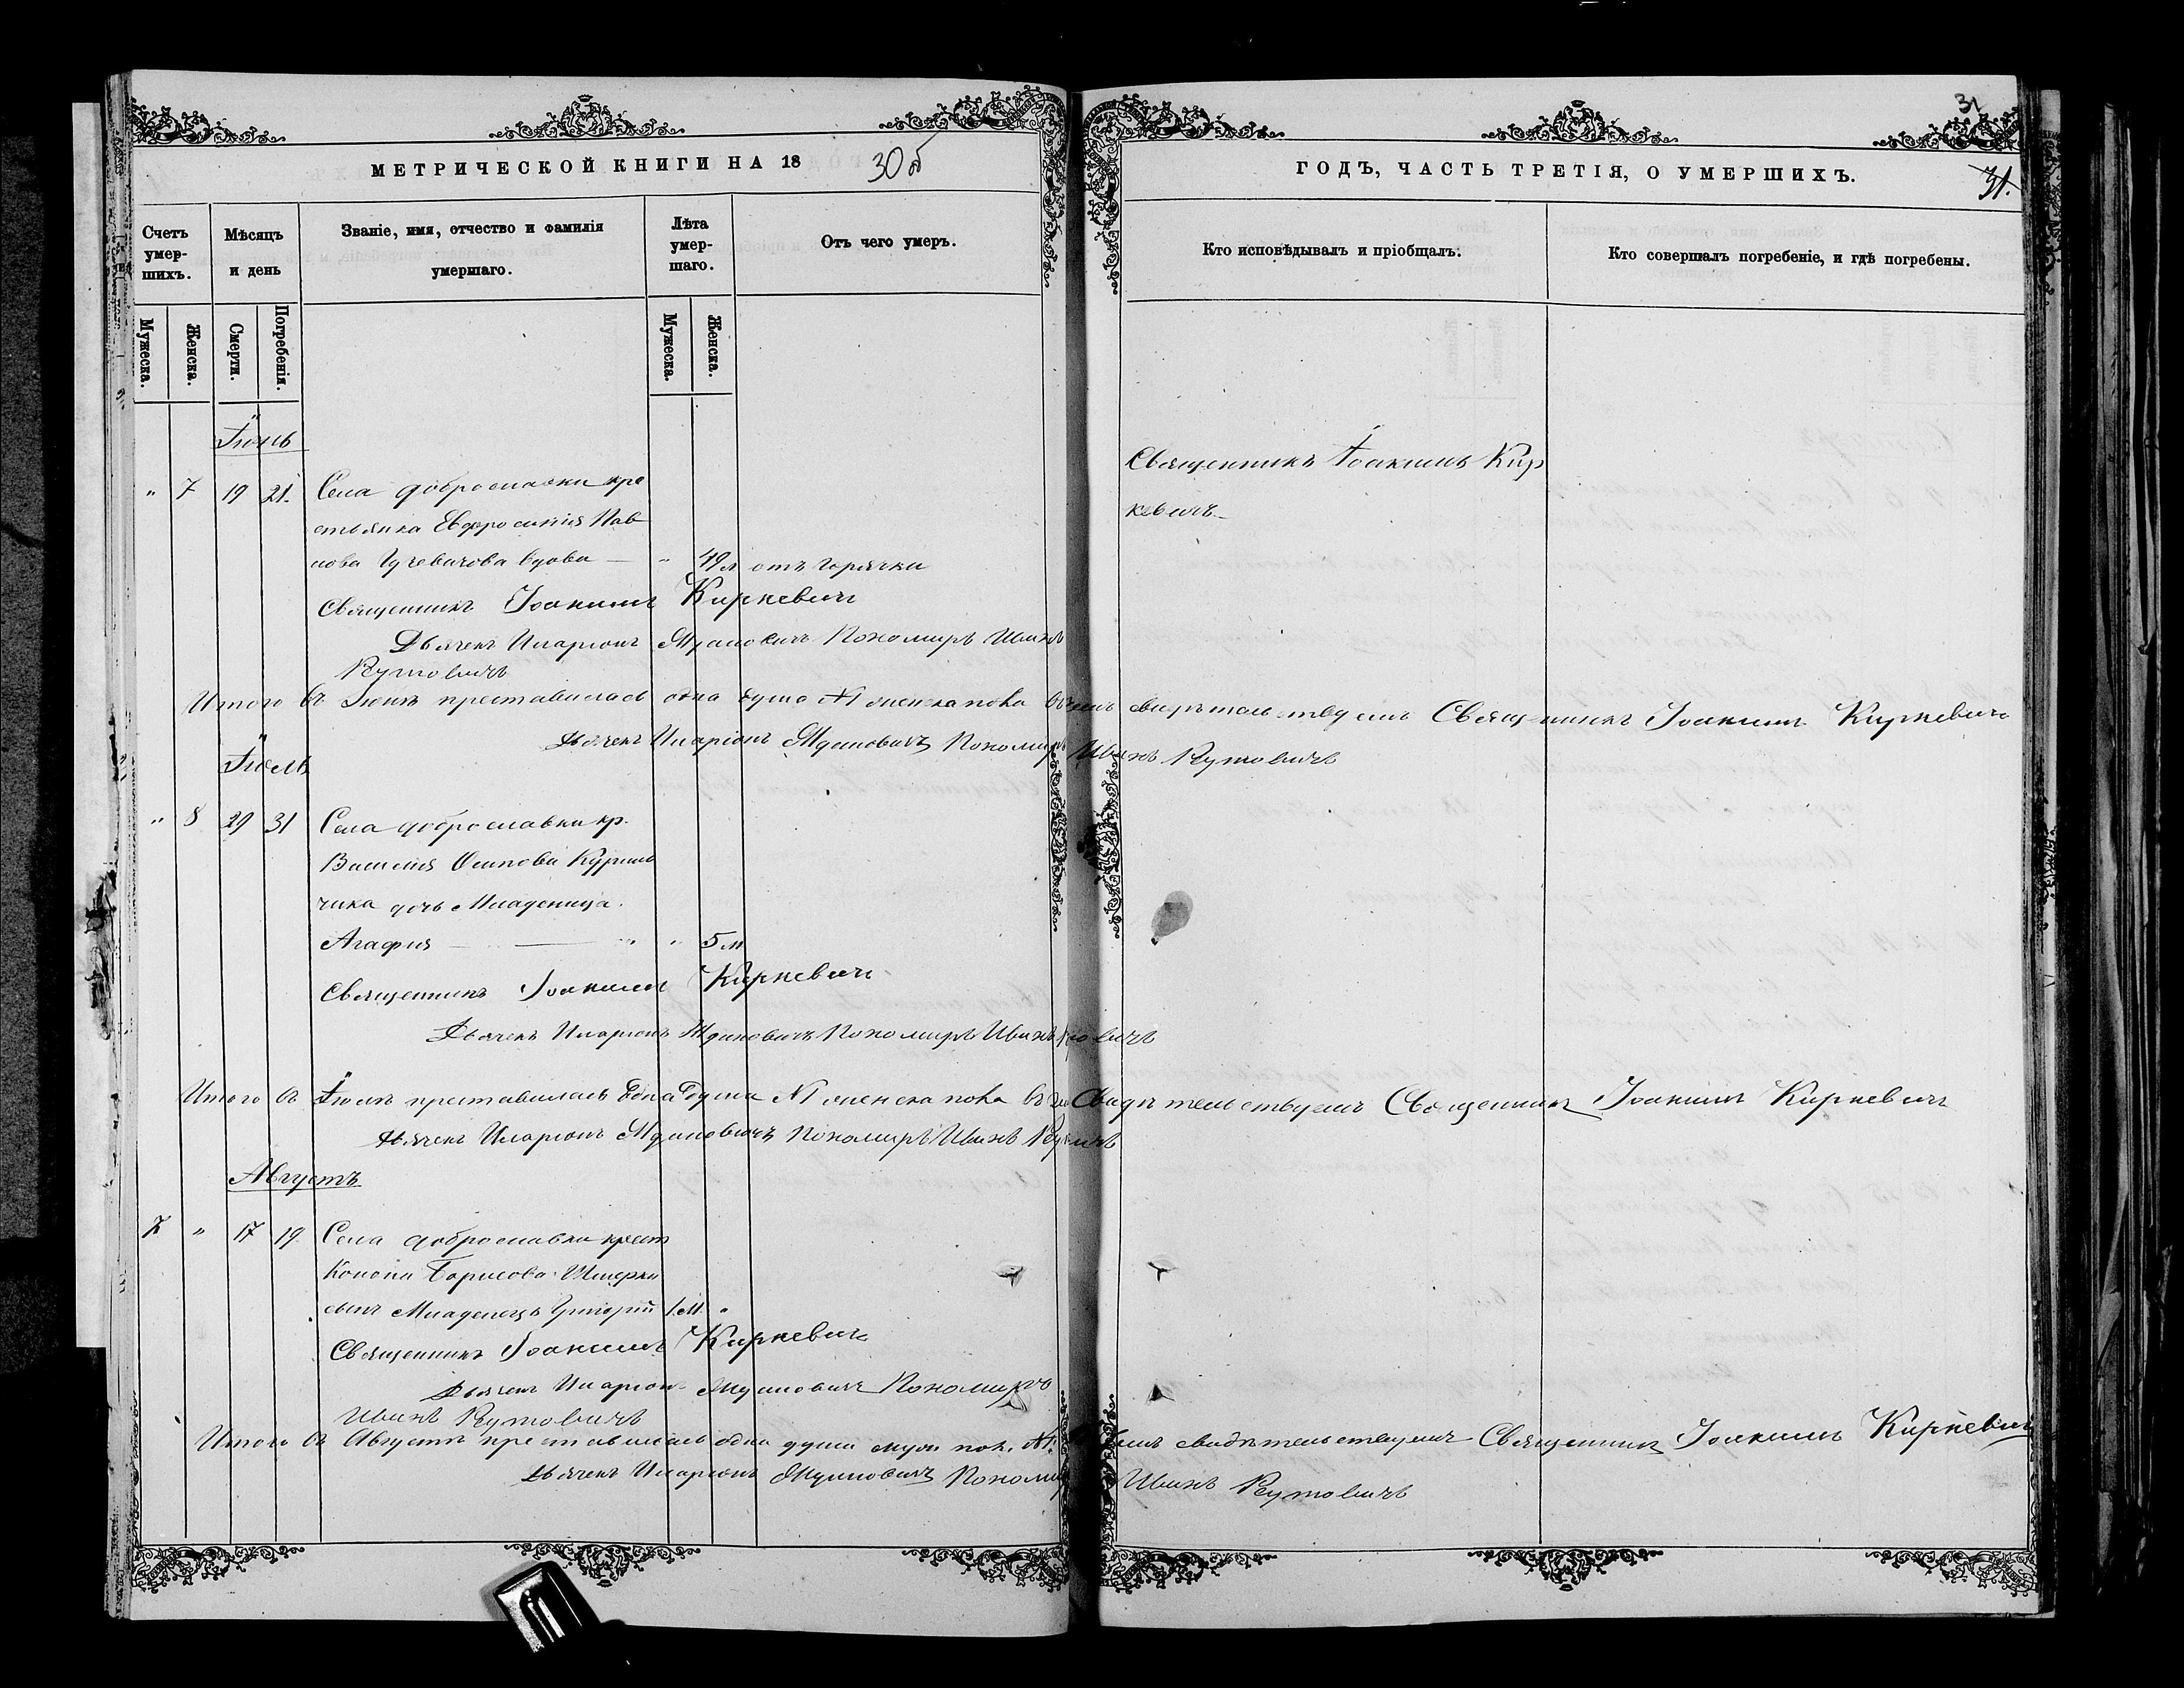 МЕТРИЧЕСКОЙ КНИГИ НА 18
30 об
Счетъ умер-шихъ.
Мѣсяцъ и день
Званіе, имя, отчество и фамилія умершаго.
Лѣта умер-шаго.
Отъ чего умеръ.
Мужеска.
Женска.
Смерти.
Погребенія.
Мужеска.
Женска.
Іюнь
" 7 19 21. Села Доброславки кре
стьянка Евфросинія Пав
лова вдова — " 49 л отъ горячки
Священникъ Іоакимъ Киркевичъ
Дьячекъ Иларіонъ Ждановичъ Пономарь Иванъ
Рутовичъ
Итого въ Іюнѣ преставилась одна душа №1 женска пола въ чемъ свидѣтельствуемъ Священникъ Іоакимъ Киркевичъ
Дьячекъ Иларіонъ Ждановичъ Пономарь Иванъ Рутовичъ
Іюль
" 8 29 31 Села Доброславки кр.
Василія Осипова Курил
чика дочь Младеница
Агафія — — " " 5 м
Священникъ Іоакимъ Киркевичъ
Дьячекъ Иларіонъ Ждановичъ Пономарь Иванъ
Итого въ Іюлѣ преставилась Одна Душа №1 женска пола въ чемъ Свидѣтельствуемъ Священникъ Іоакимъ Киркевичъ
Дьячекъ Иларіонъ Ждановичъ Пономарь Иванъ
Августъ
7 " 17 19 Села Доброславки крест
Конона Борисова
сынъ Младенецъ Григорій 1.м. "
Священникъ Іоакимъ Киркевичъ
Дьячекъ Иларіонъ Ждановичъ Пономарь
Иванъ Рутовичъ
Итого въ Августѣ преставилась одна душа муж. пол. №1. свидѣтельствуемъ Священникъ Іоакимъ Киркевичъ
Дьячекъ Иларіонъ Ждановичъ Пономарь Иванъ Рутовичъ
31
ГОДЪ, ЧАСТЬ ТРЕТІЯ, О УМЕРШИХЪ.
31.
Кто исповѣдывалъ и пріобщалъ.
Кто совершалъ погребеніе, и гдѣ погребены.
Священникъ Іоакимъ Кир
кевичъ